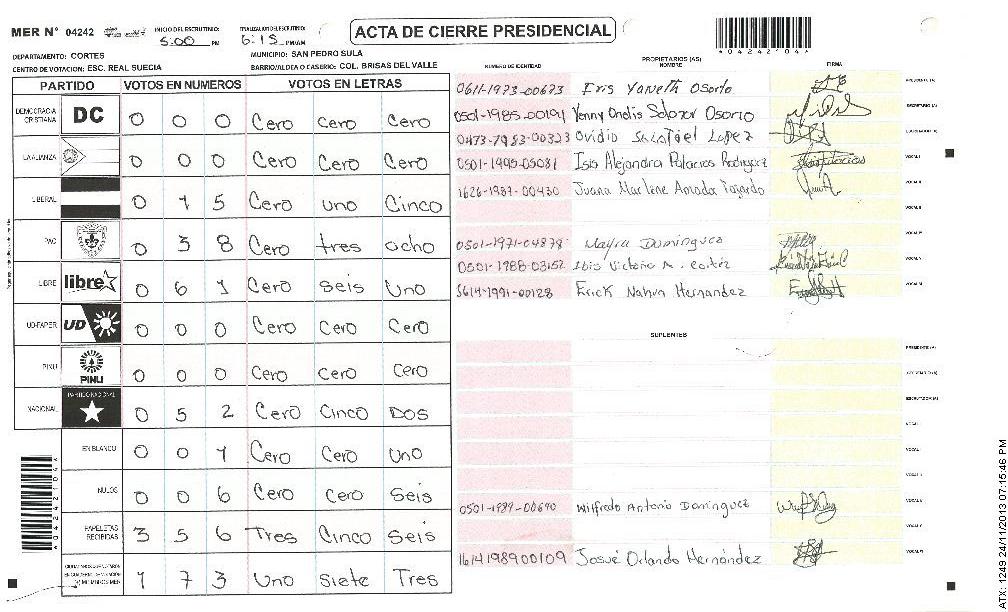 MER N° 04242 INICIO DEL ESCRUTINIO: 5:00 PM FINALIZACION DEL ESCRUTINIO: 6:15 PM/AM ACTA DE CIERRE PRESIDENCIAL
*04242104*
DEPARTAMENTO: CORTES MUNICIPIO: SAN PEDRO SULA
CENTRO DE VOTACION: ESC. REAL SUECIA BARRIO/ALDEA O CASERIO: COL. BRISAS DEL VALLE
PARTIDO VOTOS EN NUMEROS VOTOS EN LETRAS
DEMOCRACIA CRISTIANA DC 0 0 0 Cero cero Cero
LA ALIANZA 0 0 0 Cero Cero Cero
LIBERAL 0 1 5 Cero uno Cinco
PAC 0 3 8 Cero tres ocho
LIBRE libre 0 6 1 Cero seis Uno
UD-FAPER UD 0 0 0 Cero Cero Cero
PINU PINU 0 0 0 Cero Cero Cero
NACIONAL PARTIDO NACIONAL 0 5 2 Cero Cinco DOS
EN BLANCO 0 0 1 Cero Cero Uno
NULOS 0 0 6 Cero Cero Seis
PAPELETAS RECIBIDAS 3 5 6 Tres Cinco Seis
1 7 3 Uno Siete Tres
PROPIETARIOS (AS)
NUMERO DE IDENTIDAD NOMBRE FIRMA
0611-1973-00673 Eris Yaneth Osorto PRESIDENTE (A)
0501-1985-00191 Yenny Ondis Salazar Osorio SECRETARIO (A)
0473-7983-00323 Ovidio Salatiel Lopez ESCRUTADOR (A)
0501-1995-05081 Isis Alejandra Palacios Rodriguez VOCAL I
1626-1987-00430 Juana Marlene Amador Fajardo VOCAL II
VOCAL III
0501-1971-04878 Mayra Dominguez VOCAL IV
0501-1988-03152 Ibis Victoria A. Cortéz VOCAL V
1614-1991-00128 Erick Nahun Hernandez VOCAL VI
SUPLENTES
PRESIDENTE (A)
SECRETARIO (A)
ESCRUTADOR (A)
VOCAL I
VOCAL II
0501-1989-00690 Wilfredo Antonio Dominguez
VOCAL V
1614198900109 Josué Orlando Hernández VOCAL VI
*04242104*
ATX: 1249 24/11/2013 07:15:46 PM